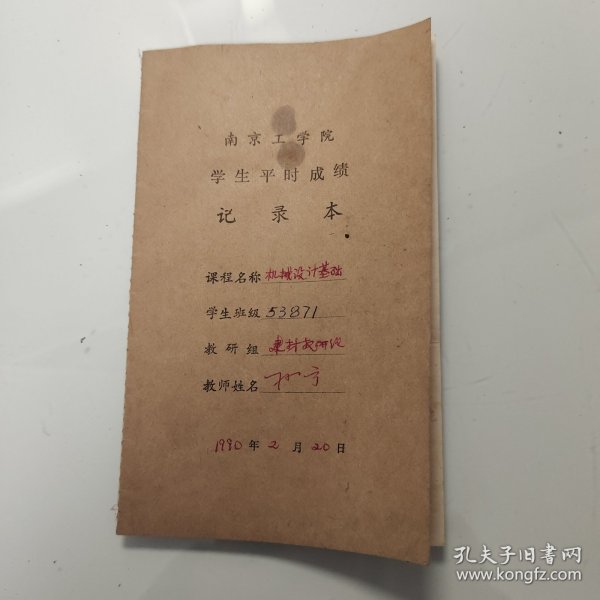 南京工学院
学生平时成绩
记录本
课程名称 机械设计基础
学生班级 53871
教研组
教师姓名
1990年2月20日
孔夫子旧书网
www.kongfz.com